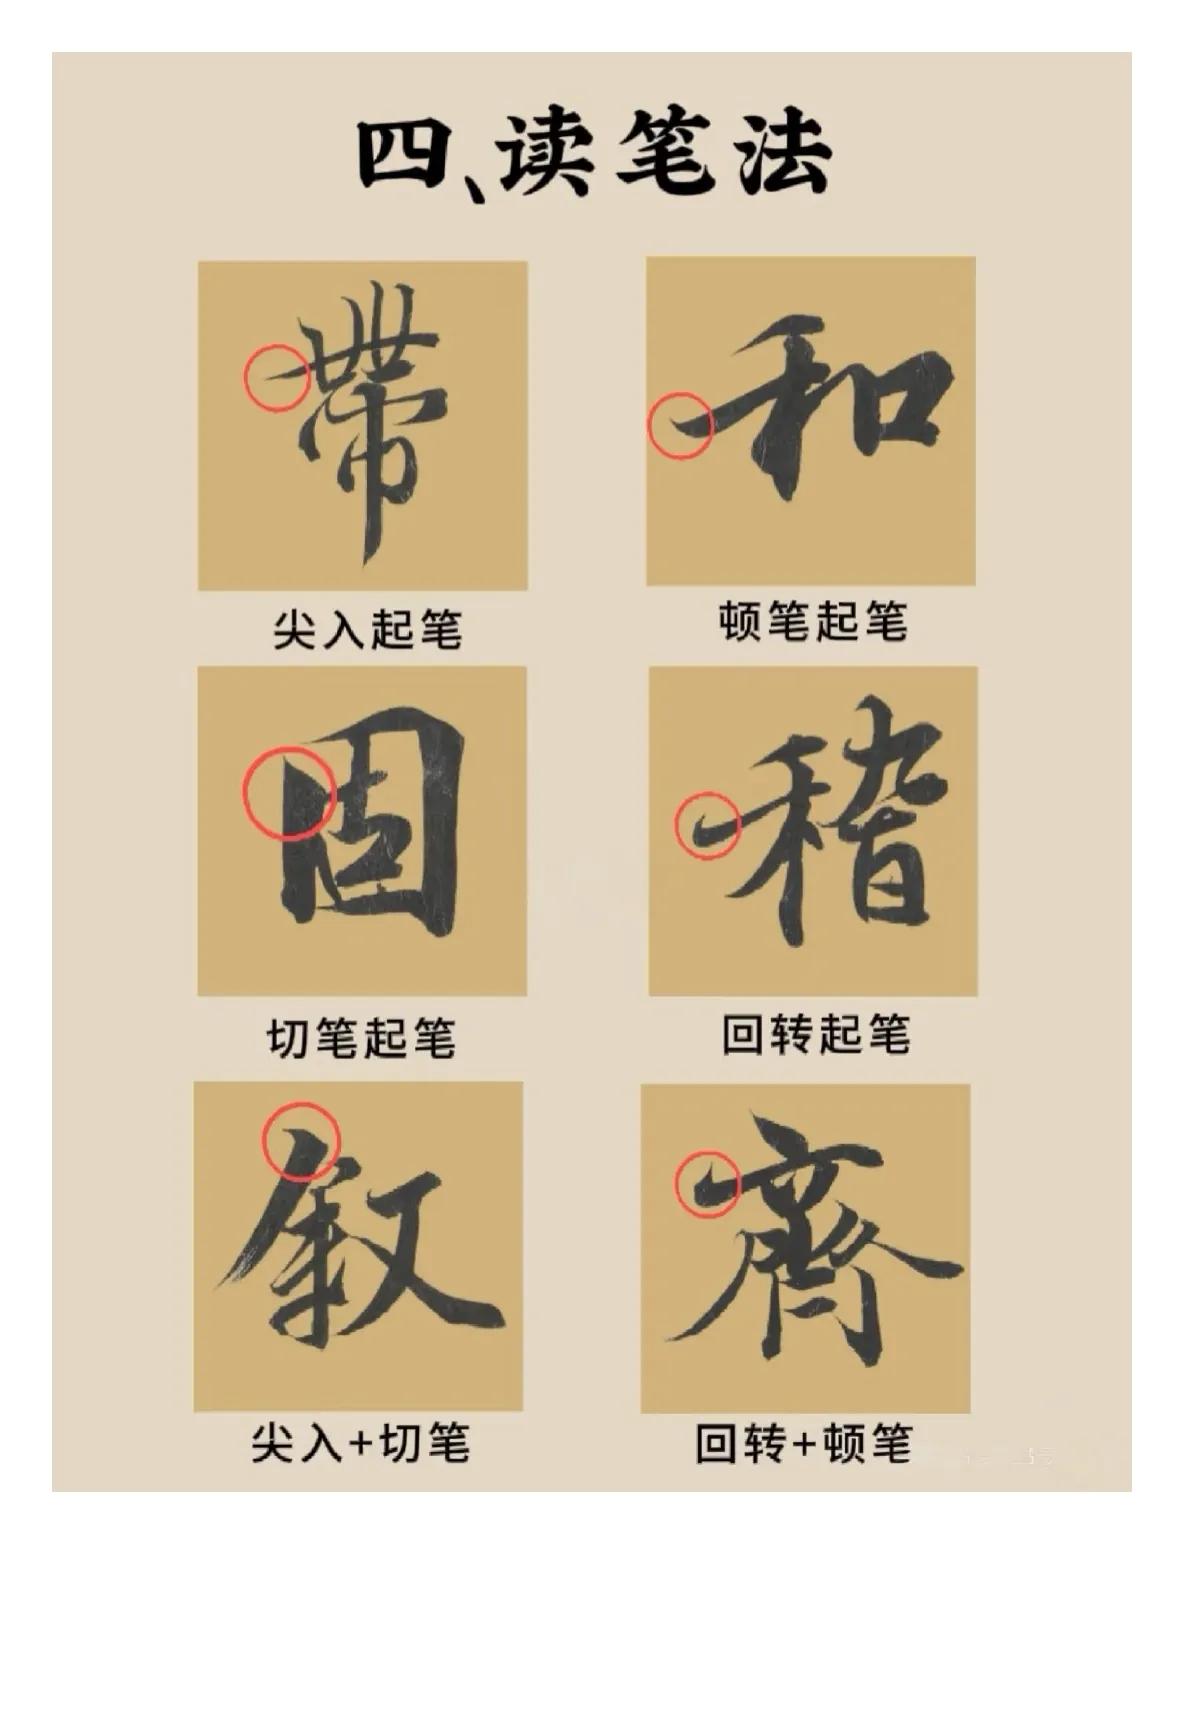 四、读笔法
帶 和
尖入起笔 顿笔起笔
固 稽
切笔起笔 回转起笔
叙 齊
尖入+切笔 回转+顿笔